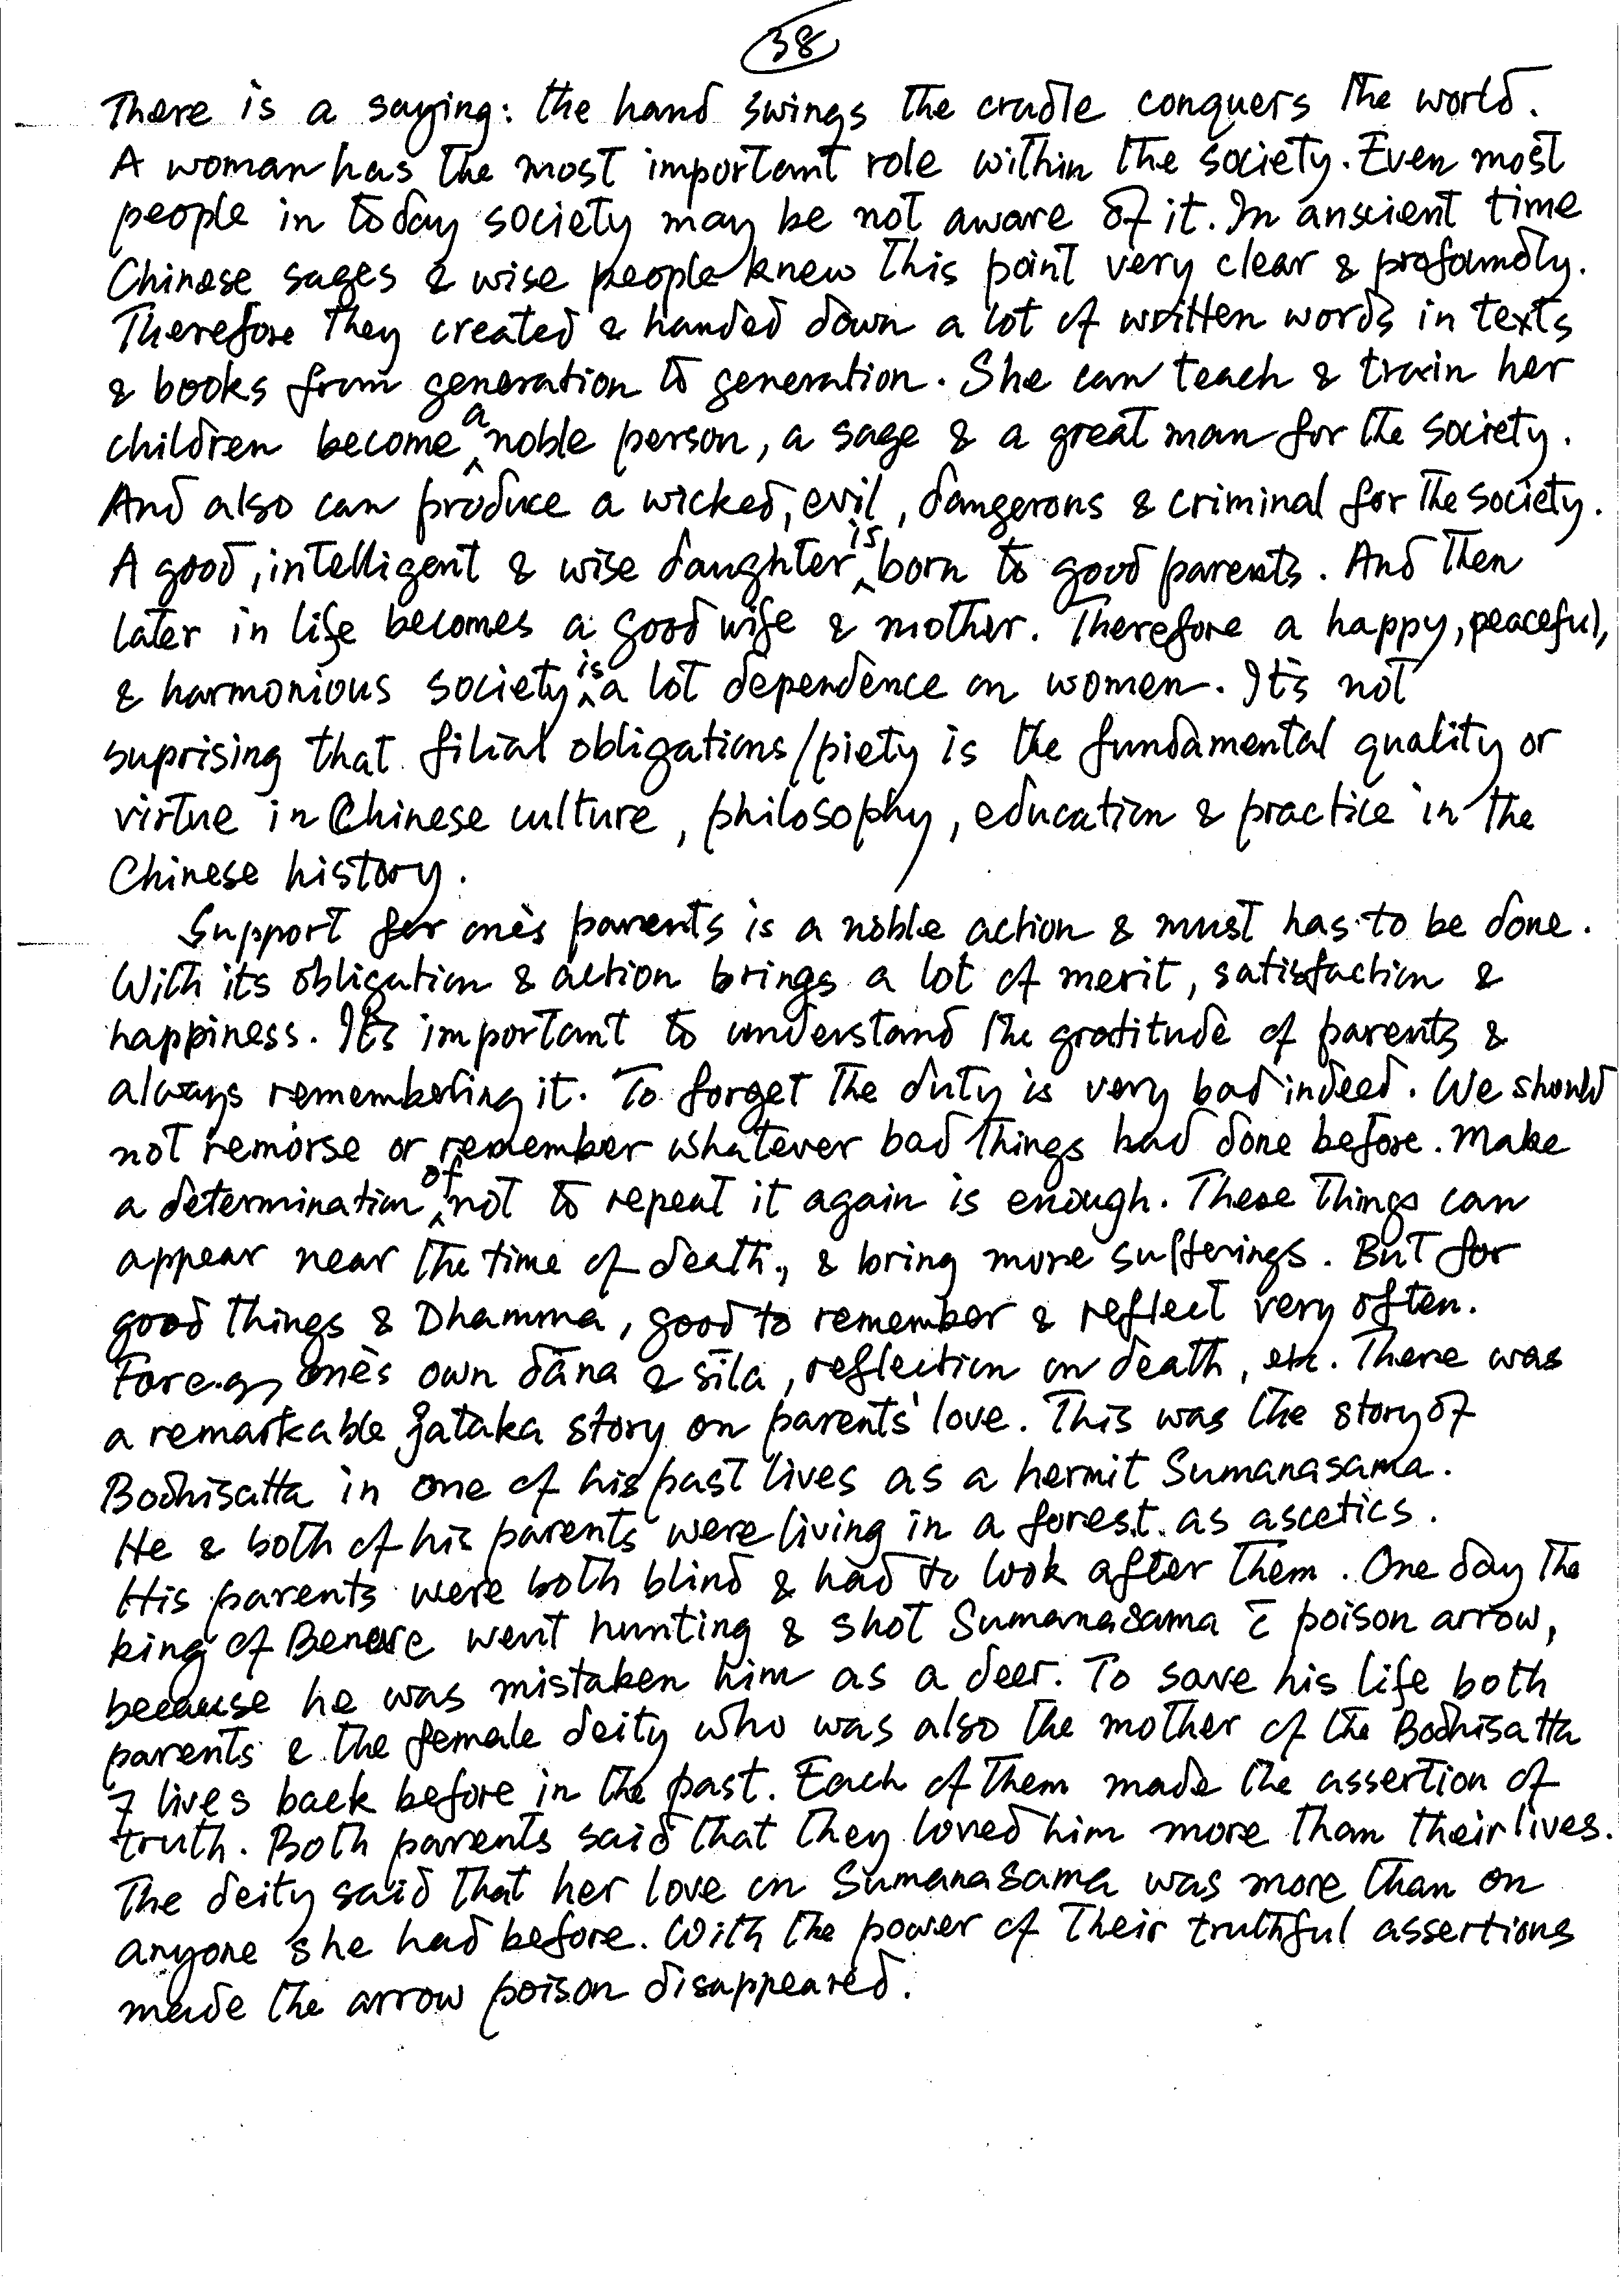 38
There is a saying: the hand swings the cradle conquers the world.
A woman has the most important role within the society. Even most
people in today society may be not aware of it. In anscient time
Chinese sages & wise people knew this point very clear & profoundly.
Therefore they created & handed down a lot of written words in texts
& books from generation to generation. She can teach & train her
children become a noble person, a sage & a great man for the society.
And also can produce a wicked, evil, dangerous & criminal for the society.
A good, intelligent & wise daughter is born to good parents. And then
later in life becomes a good wife & mother. Therefore a happy, peaceful,
& harmonious society is a lot dependence on women. It's not
suprising that filial obligations/piety is the fundamental quality or
virtue in Chinese culture, philosophy, education & practice in the
Chinese history.
Support for one's parents is a noble action & must has to be done.
With its obligation & action brings a lot of merit, satisfaction &
happiness. It's important to understand the gratitude of parents &
always remembering it. To forget the duty is very bad indeed. We should
not remorse or remember whatever bad things had done before. Make
a determination of not to repeat it again is enough. These things can
appear near the time of death, & bring more sufferings. But for
good things & Dhamma, good to remember & reflect very often.
For e.g, one's own dāna & sīla, reflection on death, etc. There was
a remarkable Jataka story on parents' love. This was the story of
Bodhisatta in one of his past lives as a hermit Sumanasama.
He & both of his parents were living in a forest as ascetics.
His parents were both blind & had to look after them. One day the
king of Benare went hunting & shot Sumanasama c̄ poison arrow,
because he was mistaken him as a deer. To save his life both
parents & the female deity who was also the mother of the Bodhisatta
7 lives back before in the past. Each of them made the assertion of
truth. Both parents said that they loved him more than their lives.
The deity said that her love on Sumanasama was more than on
anyone she had before. With the power of their truthful assertions
made the arrow poison disappeared.